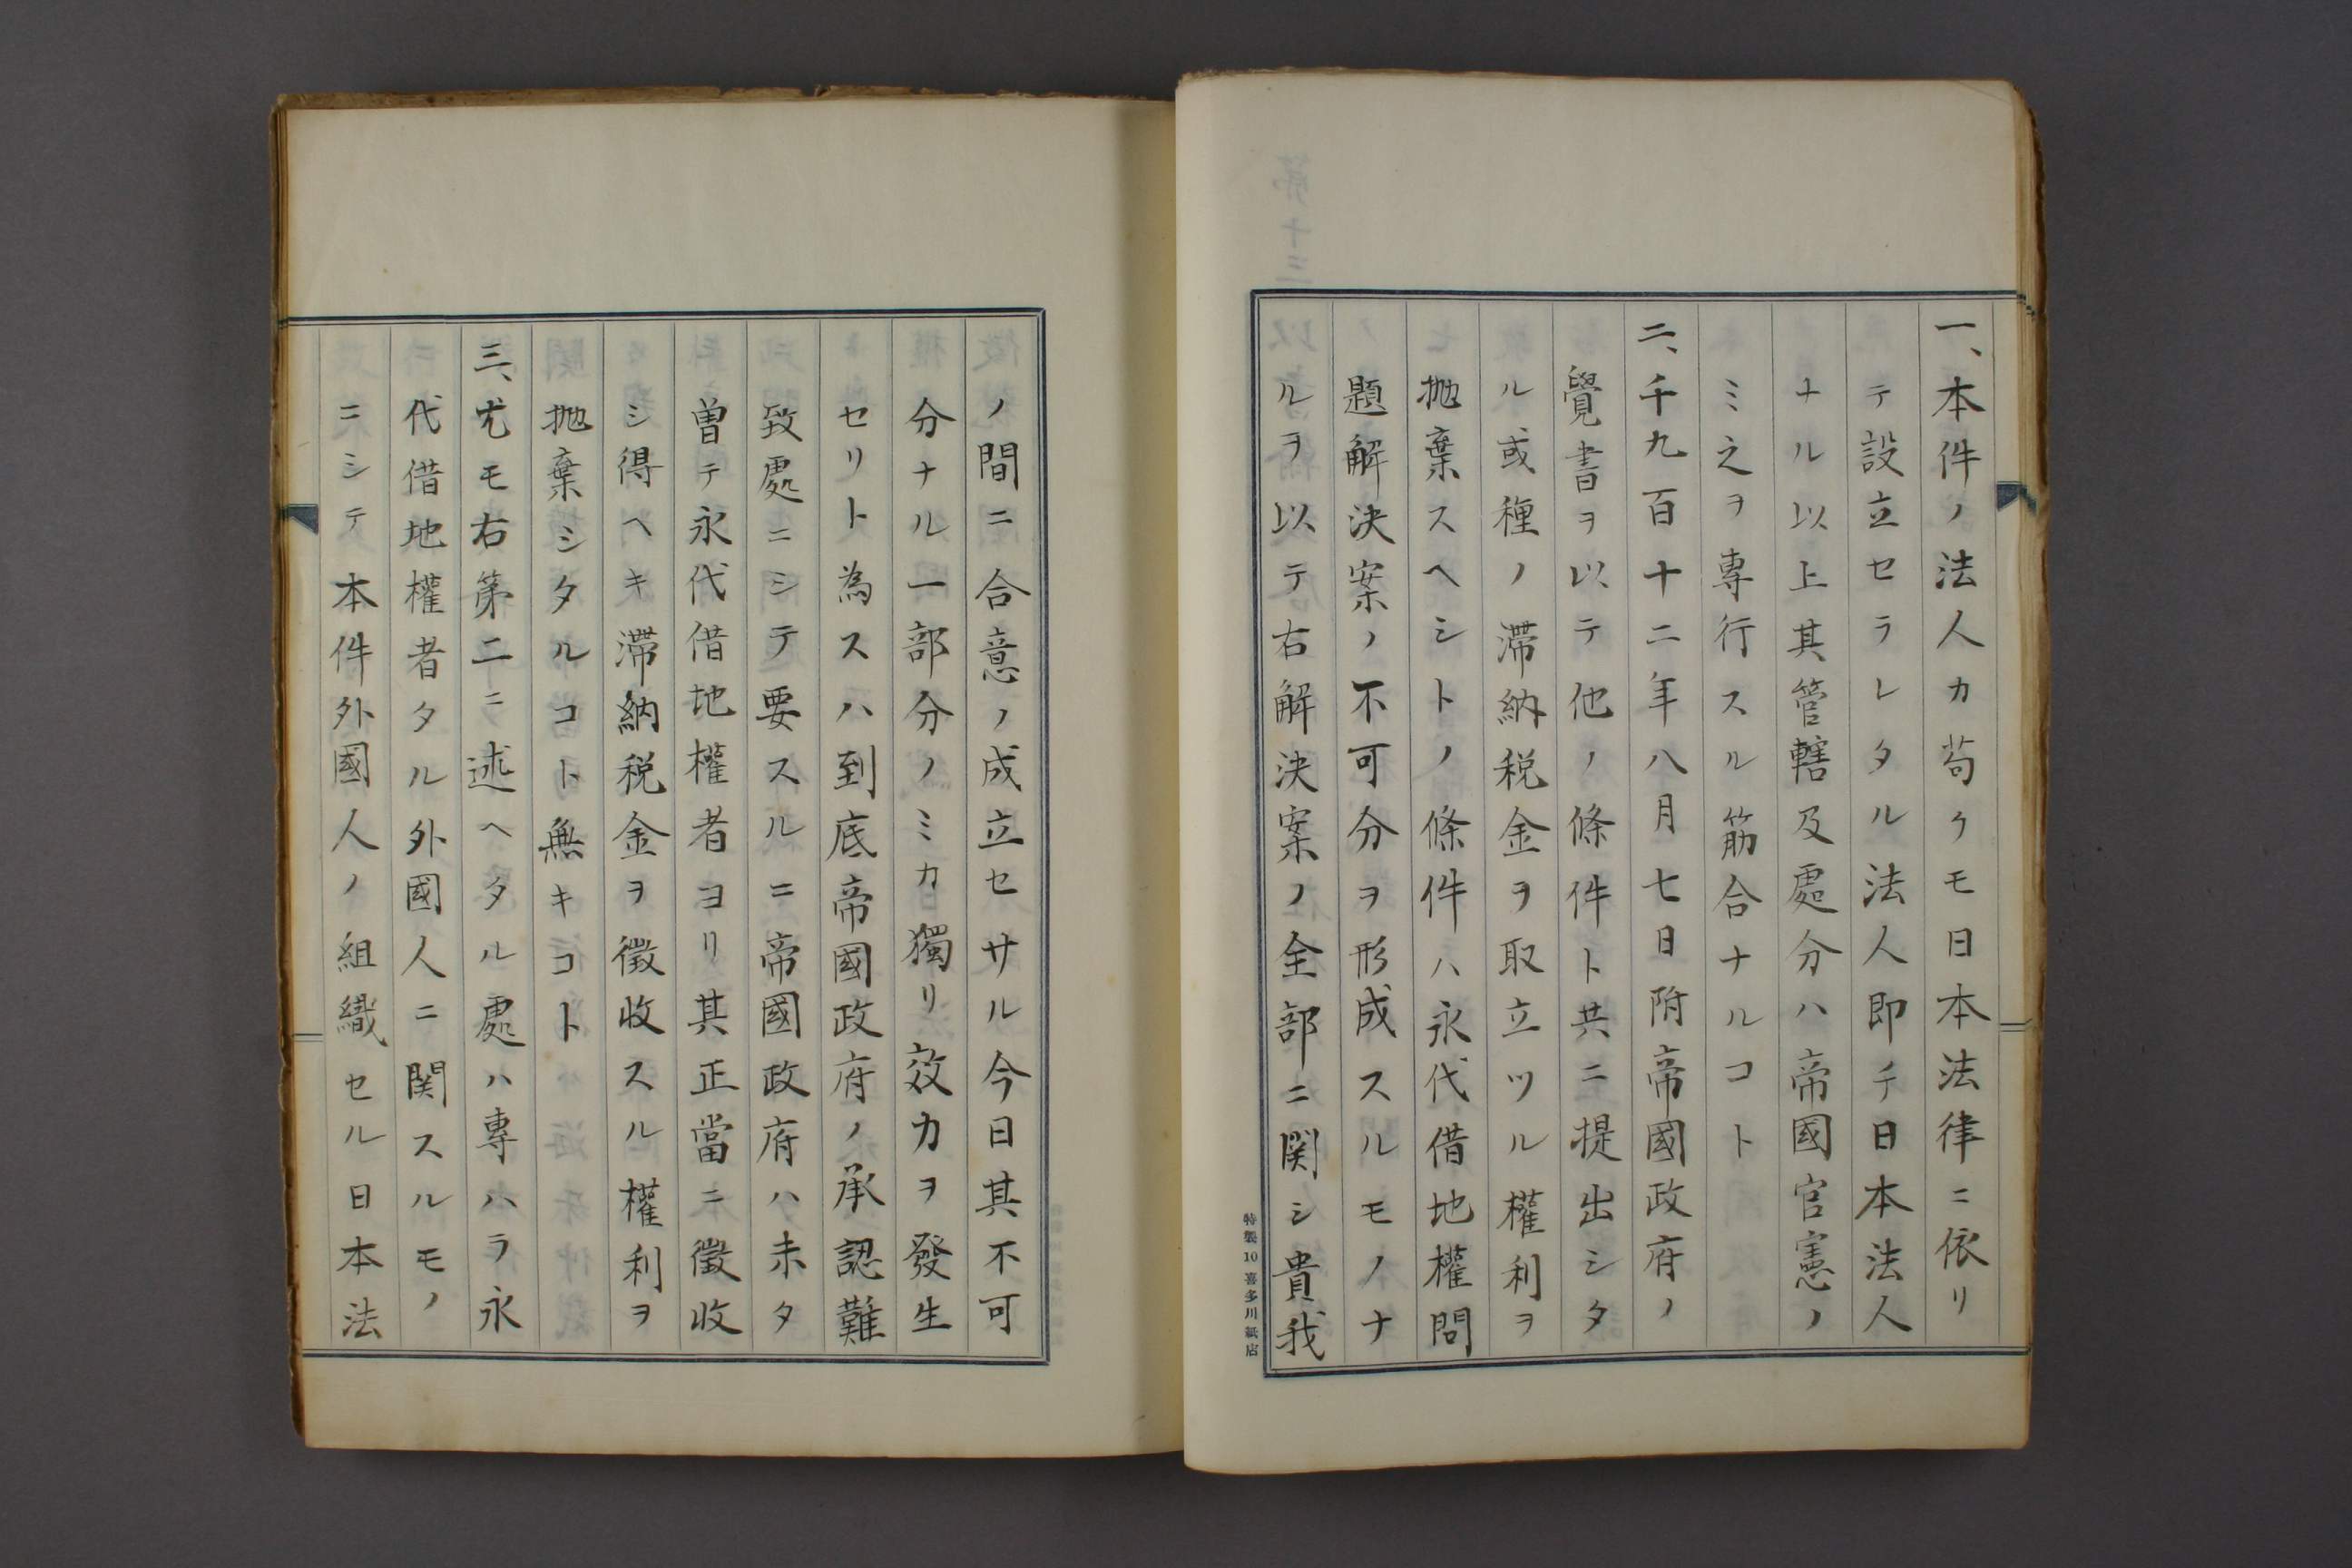 一、本件ノ法人カ苟クモ日本法律ニ依リ
テ設立セラレタル法人即チ日本法人
ナル以上其管轄及處分ハ帝國官憲ノ
ミ之ヲ專行スル筋合ナルコト
二、千九百十二年八月七日附帝國政府ノ
覺書ヲ以テ他ノ條件ト共ニ提出シタ
ル或種ノ滯納税金ヲ取立ツル權利ヲ
抛棄スヘシトノ條件ハ永代借地權問
題解決案ノ不可分ヲ形成スルモノナ
ルヲ以テ右解決案ノ全部ニ関シ貴我
特製10喜多川紙店
ノ間ニ合意ノ成立セサル今日其不可
分ナル一部分ノミカ獨リ效力ヲ發生
セリト為スハ到底帝國政府ノ承認難
致處ニシテ要スルニ帝國政府ハ未タ
曽テ永代借地權者ヨリ其正當ニ徴收
シ得ヘキ滯納税金ヲ徴收スル權利ヲ
抛棄シタルコト無キコト
三、尤モ右第二ニ述ヘタル處ハ專ハラ永
代借地權者タル外國人ニ関スルモノ
ニシテ本件外國人ノ組織セル日本法